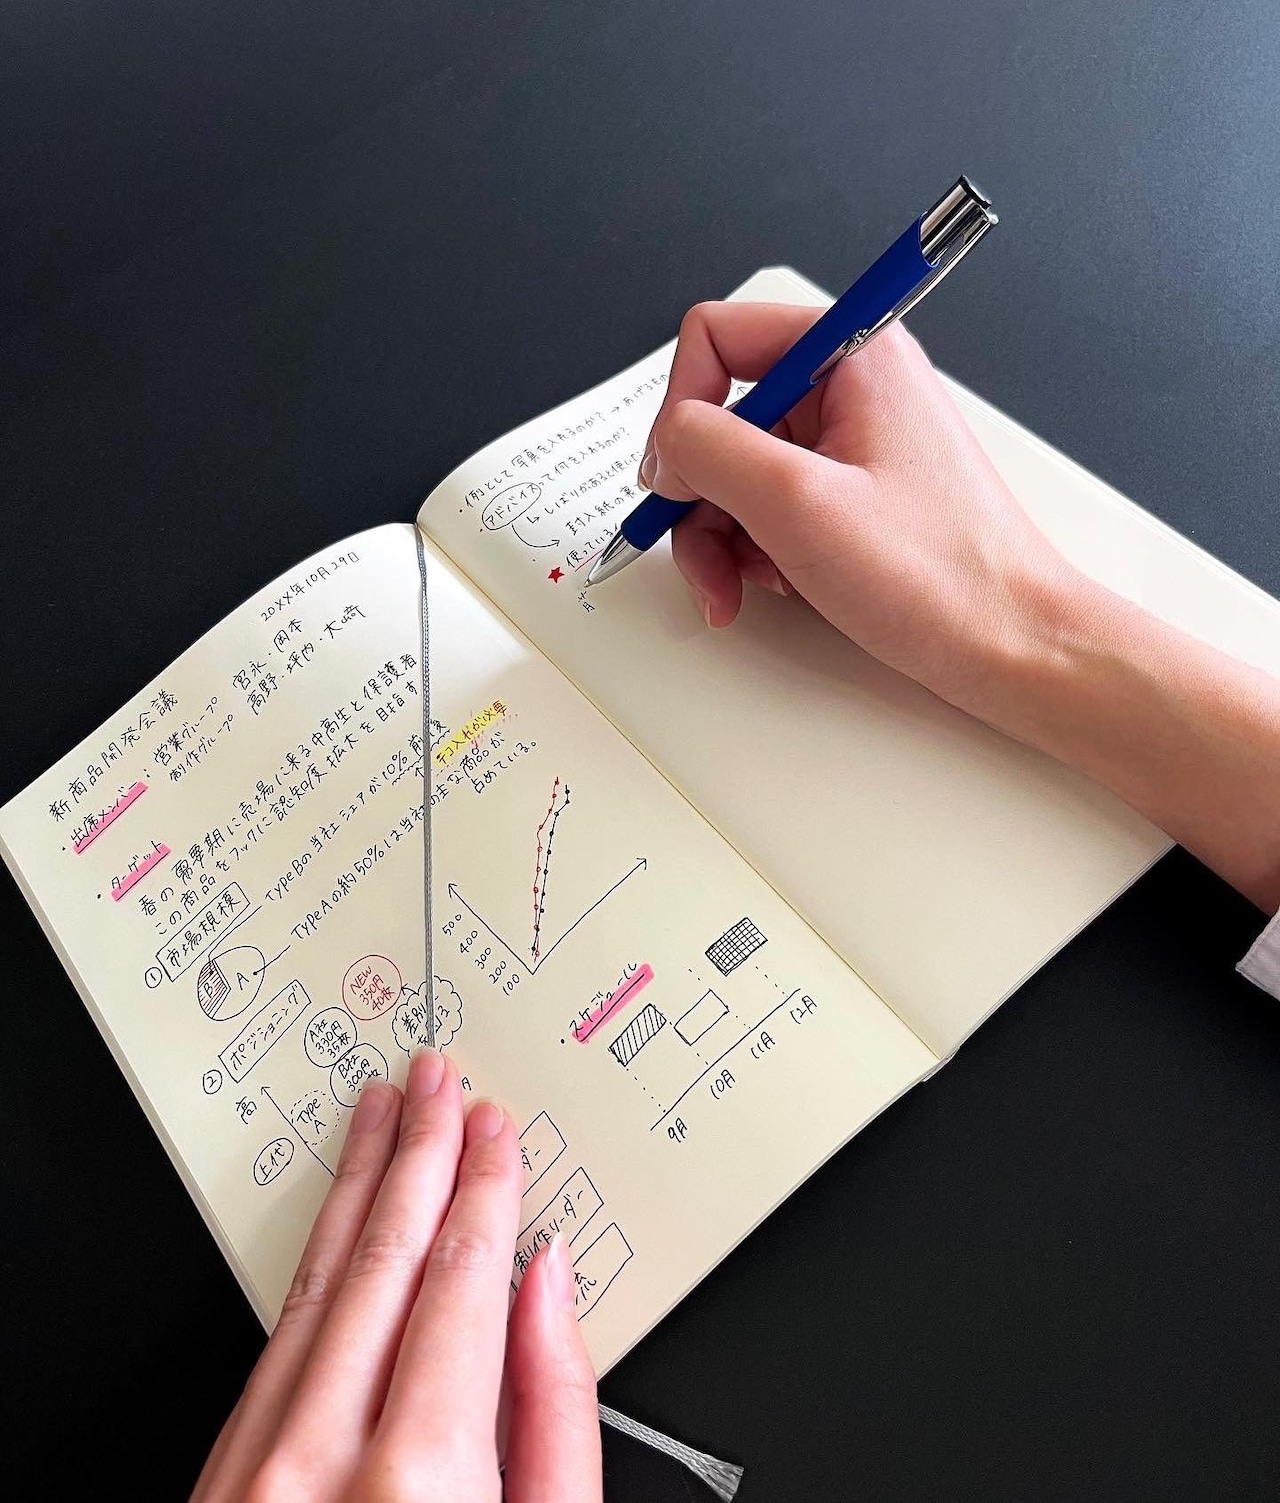 20XX年10月29日
新商品開発会議
・出席メンバー：営業グループ 宮永・岡本
制作グループ 高野・坪内・大﨑
・ターゲット
春の需要期に売場に来る中高生と保護者
この商品をフックに認知度拡大を目指す
① 市場規模
TypeBの当社シェアが10%前後
テコ入れが必要
TypeAの約50%は当社の主な商品が
占めている。
B
A
② ポジショニング
NEW
350円
40枚
A社
330円
35枚
B社
300円
差別
高
Type
A
上代
500
400
300
200
100
・スケジュール
9月
10月
11月
12月
ダー
制作リーダー
・例として写真を入れるのか？→あげるもの
・アドバイスって何を入れるのか？
↳しばりがあると使いた
封入紙の裏
★使っている